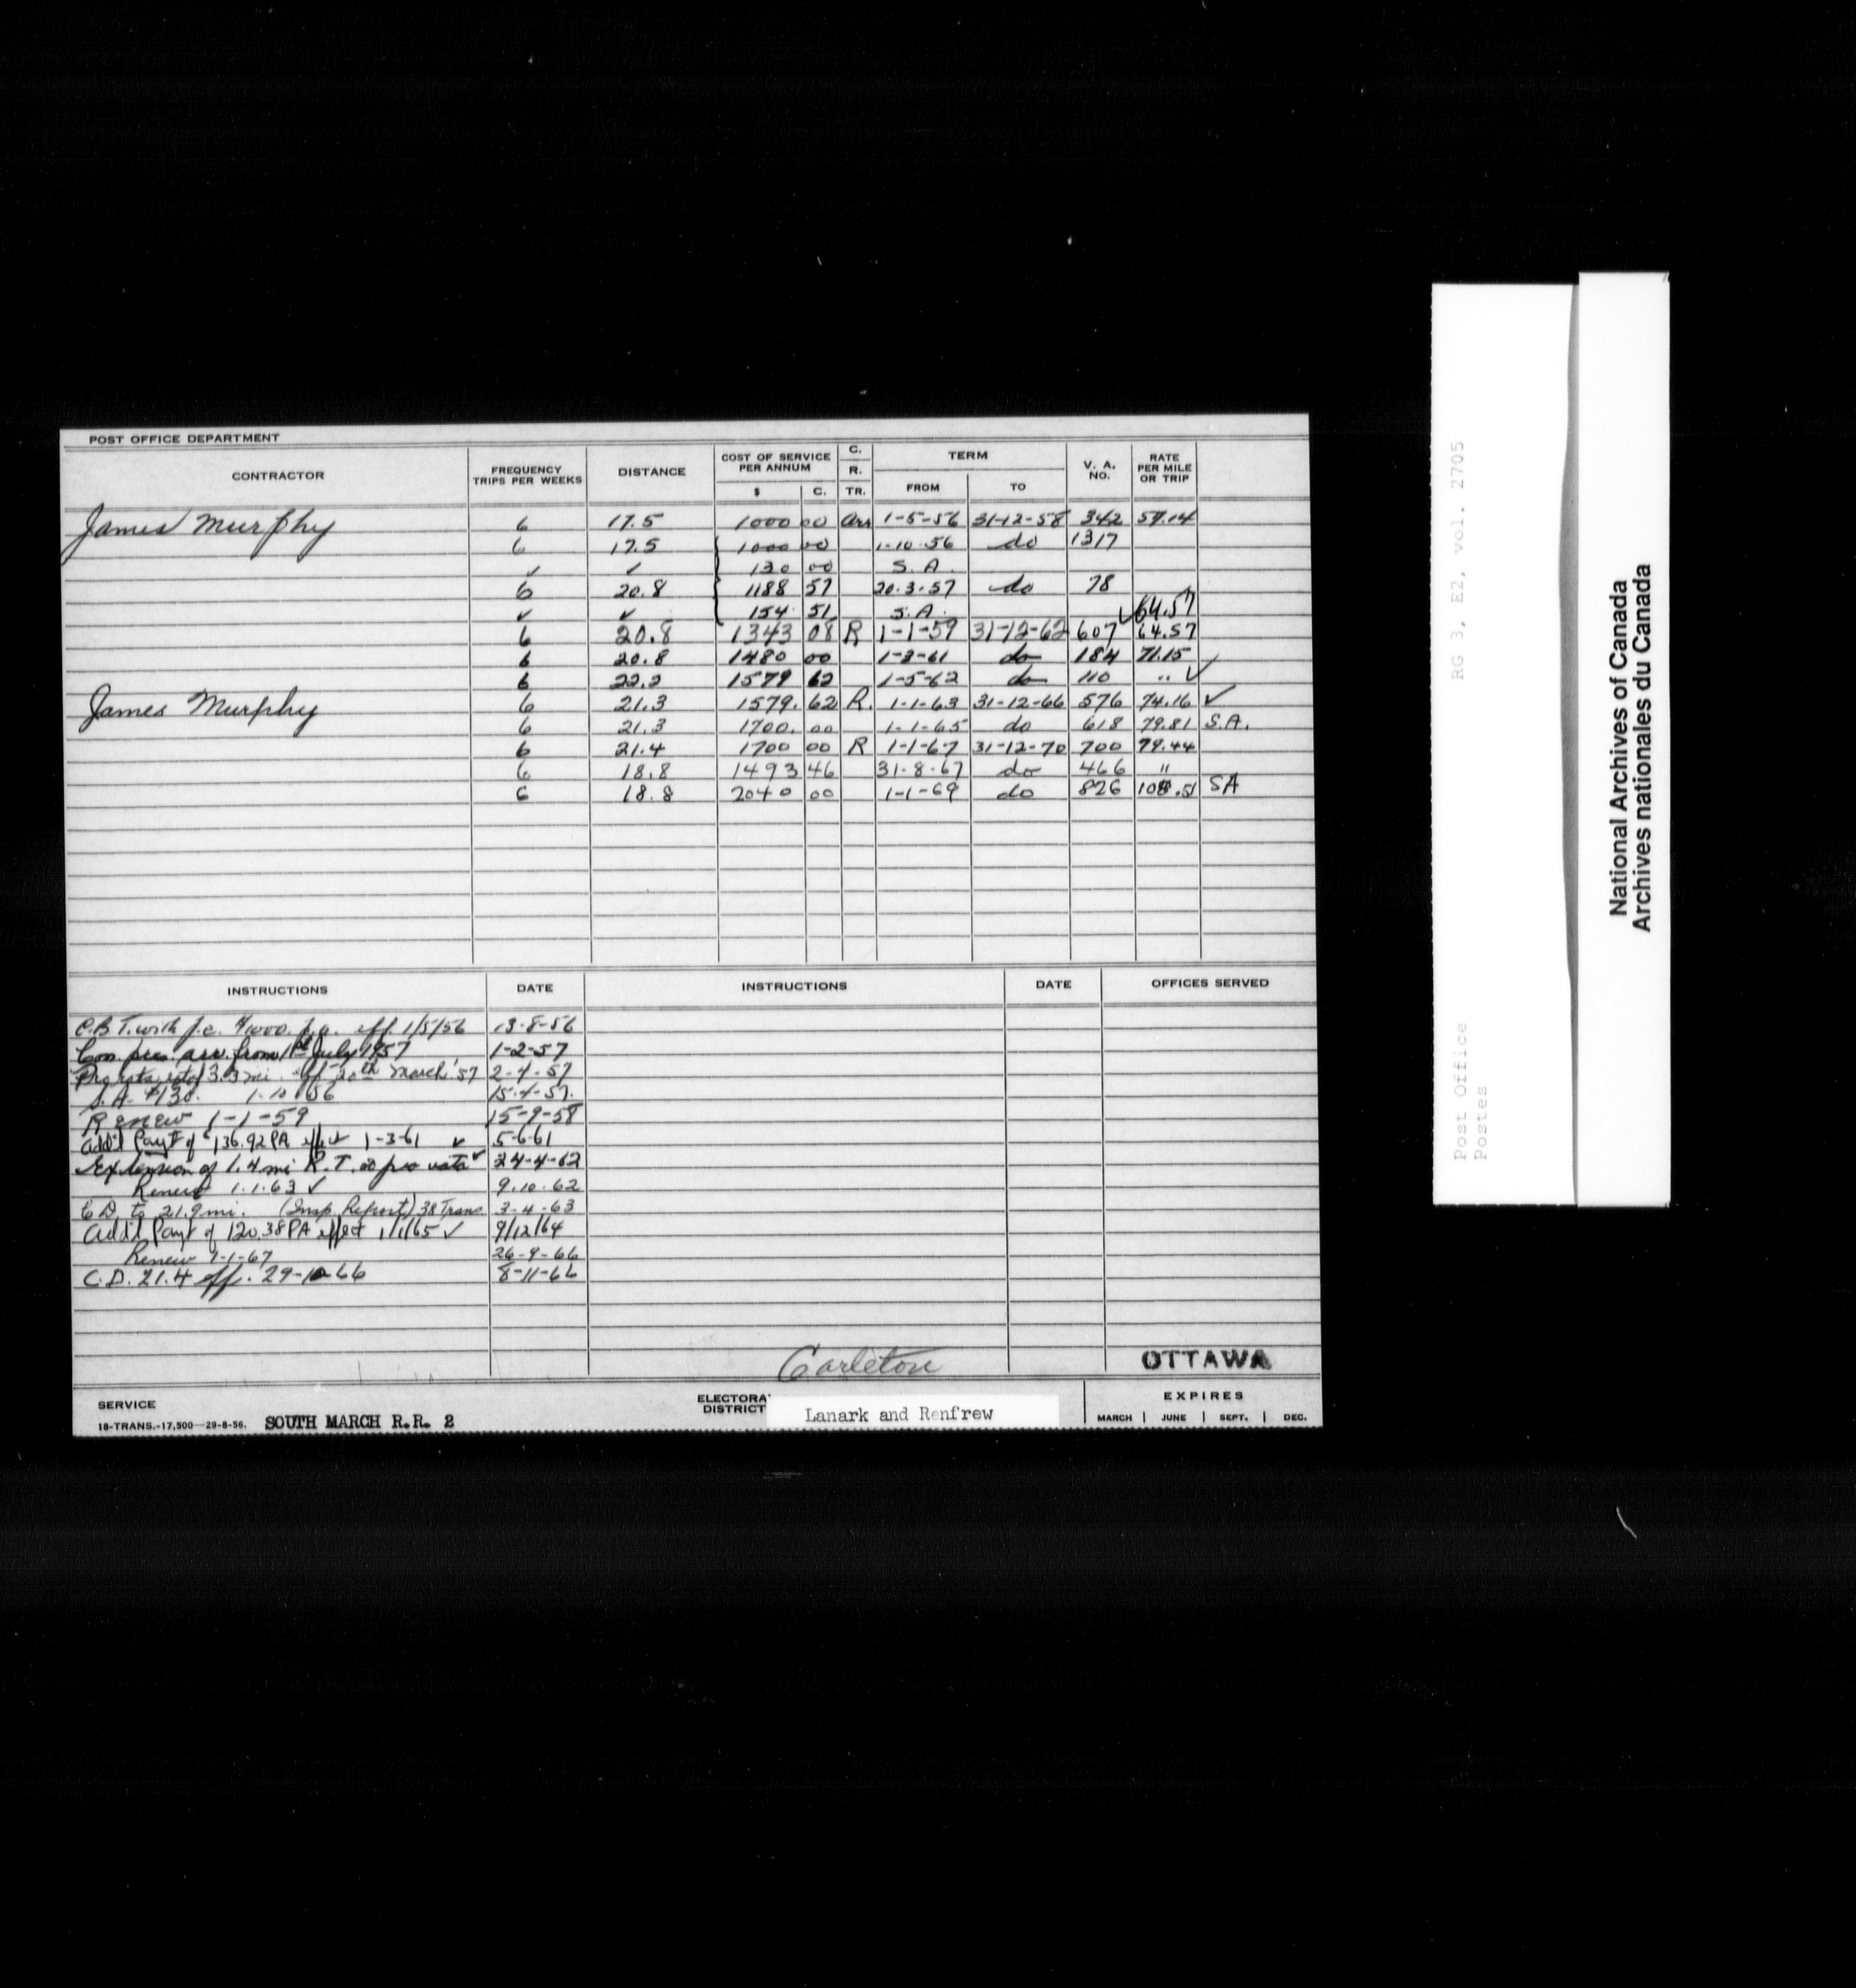 POST OFFICE DEPARTMENT
CONTRACTOR FREQUENCY TRIPS PER WEEKS DISTANCE COST OF SERVICE PER ANNUM $ C. C. R. TR. TERM FROM TO V. A. NO. RATE PER MILE OR TRIP
James Murphy 6 17.5 1000 00 Arr 1-5-56 31-12-58 342 57.14
6 17.5 1000 00 1-10-56 do 1317
✓ ✓ 130 00 S.A.
6 20.8 1188 57 20-3-57 do 78
✓ ✓ 154 51 S.A. ✓64.57
6 20.8 1343 08 R 1-1-59 31-12-62 607 64.57
6 20.8 1480 00 do 184 71.15
6 22.2 1579 62 1-5-62 do 110 " ✓
James Murphy 6 21.3 1579. 62 R. 1-1-63 31-12-66 576 74.16 ✓
6 21.3 1700. 00 1-1-65 do 618 79.81 S.A.
6 21.4 1700 00 R 1-1-67 31-12-70 700 79.44
6 18.8 1493 46 31-8-67 do 466 "
6 18.8 2040 00 1-1-69 do 826 108.51 SA
INSTRUCTIONS DATE INSTRUCTIONS DATE OFFICES SERVED
C.B.T. with J.C. $1000. p.a. eff. 1/5/56 13-8-56
arr. from 1st July 1957 1-2-57
Pro rata 3.3 mi eff 20th March '57 2-4-57
S.A. $130. 1-10-56 15-4-57.
Renew 1-1-59 15-9-58
Add'l Paymt of $136.92 PA 1-3-61 ✓ 5-6-61
Extension of 1.4 mi R.T. pro rata ✓ 24-4-62
Renew 1.1.63 ✓ 9.10.62
C.D. to mi. (Insp. Report) 38 Trans. 3-4-63
Add'l Paymt of 120.38 PA effect 1/1/65 ✓ 9/12/64
Renew 1-1-67 26-9-66
C.D. 21.4 eff. 29-10-66 8-11-66
Carleton OTTAWA
SERVICE ELECTORA' DISTRICT Lanark and Renfrew EXPIRES
18-TRANS.-17,500—29-8-56. SOUTH MARCH R.R. 2 MARCH JUNE SEPT. DEC.
RG 3, E2, vol. 2705
Post Office
Postes
National Archives of Canada
Archives nationales du Canada